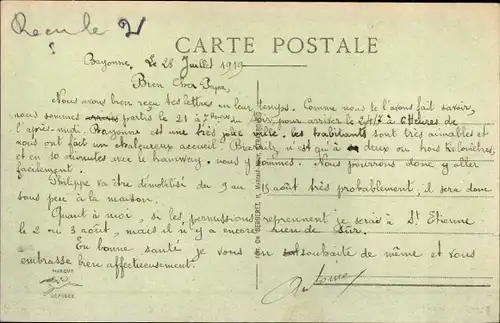 Reçu le 2
CARTE POSTALE
Bayonne, Le 28 Juillet 1919
Bien Cher Papa,
Nous avons bien reçu tes lettres en leur temps. Comme nous te l'avons fait savoir,
nous sommes partis le 21 à 7 heures du soir pour arriver le 24/7 à 6 Heures de
l'après-midi. Bayonne est une très jolie ville. les habitants sont très aimables et
nous ont fait un chaleureux accueil. Biarritz n'est qu'à deux ou trois Kilomètres
et en 10 minutes avec le tramway nous y sommes. Nous pourrons donc y aller
facilement.
Philippe va être démobilisé du 9 au 15 août très probablement, il sera donc
sous peu à la maison.
Quant à moi, si les permissions reprennent je serais à St Etienne
le 2 ou 3 août, mais il n'y a encore rien de sûr.
En bonne santé je vous en souhaite de même et vous
embrasse bien affectueusement.
Antoine
MARQUE
DÉPOSÉE